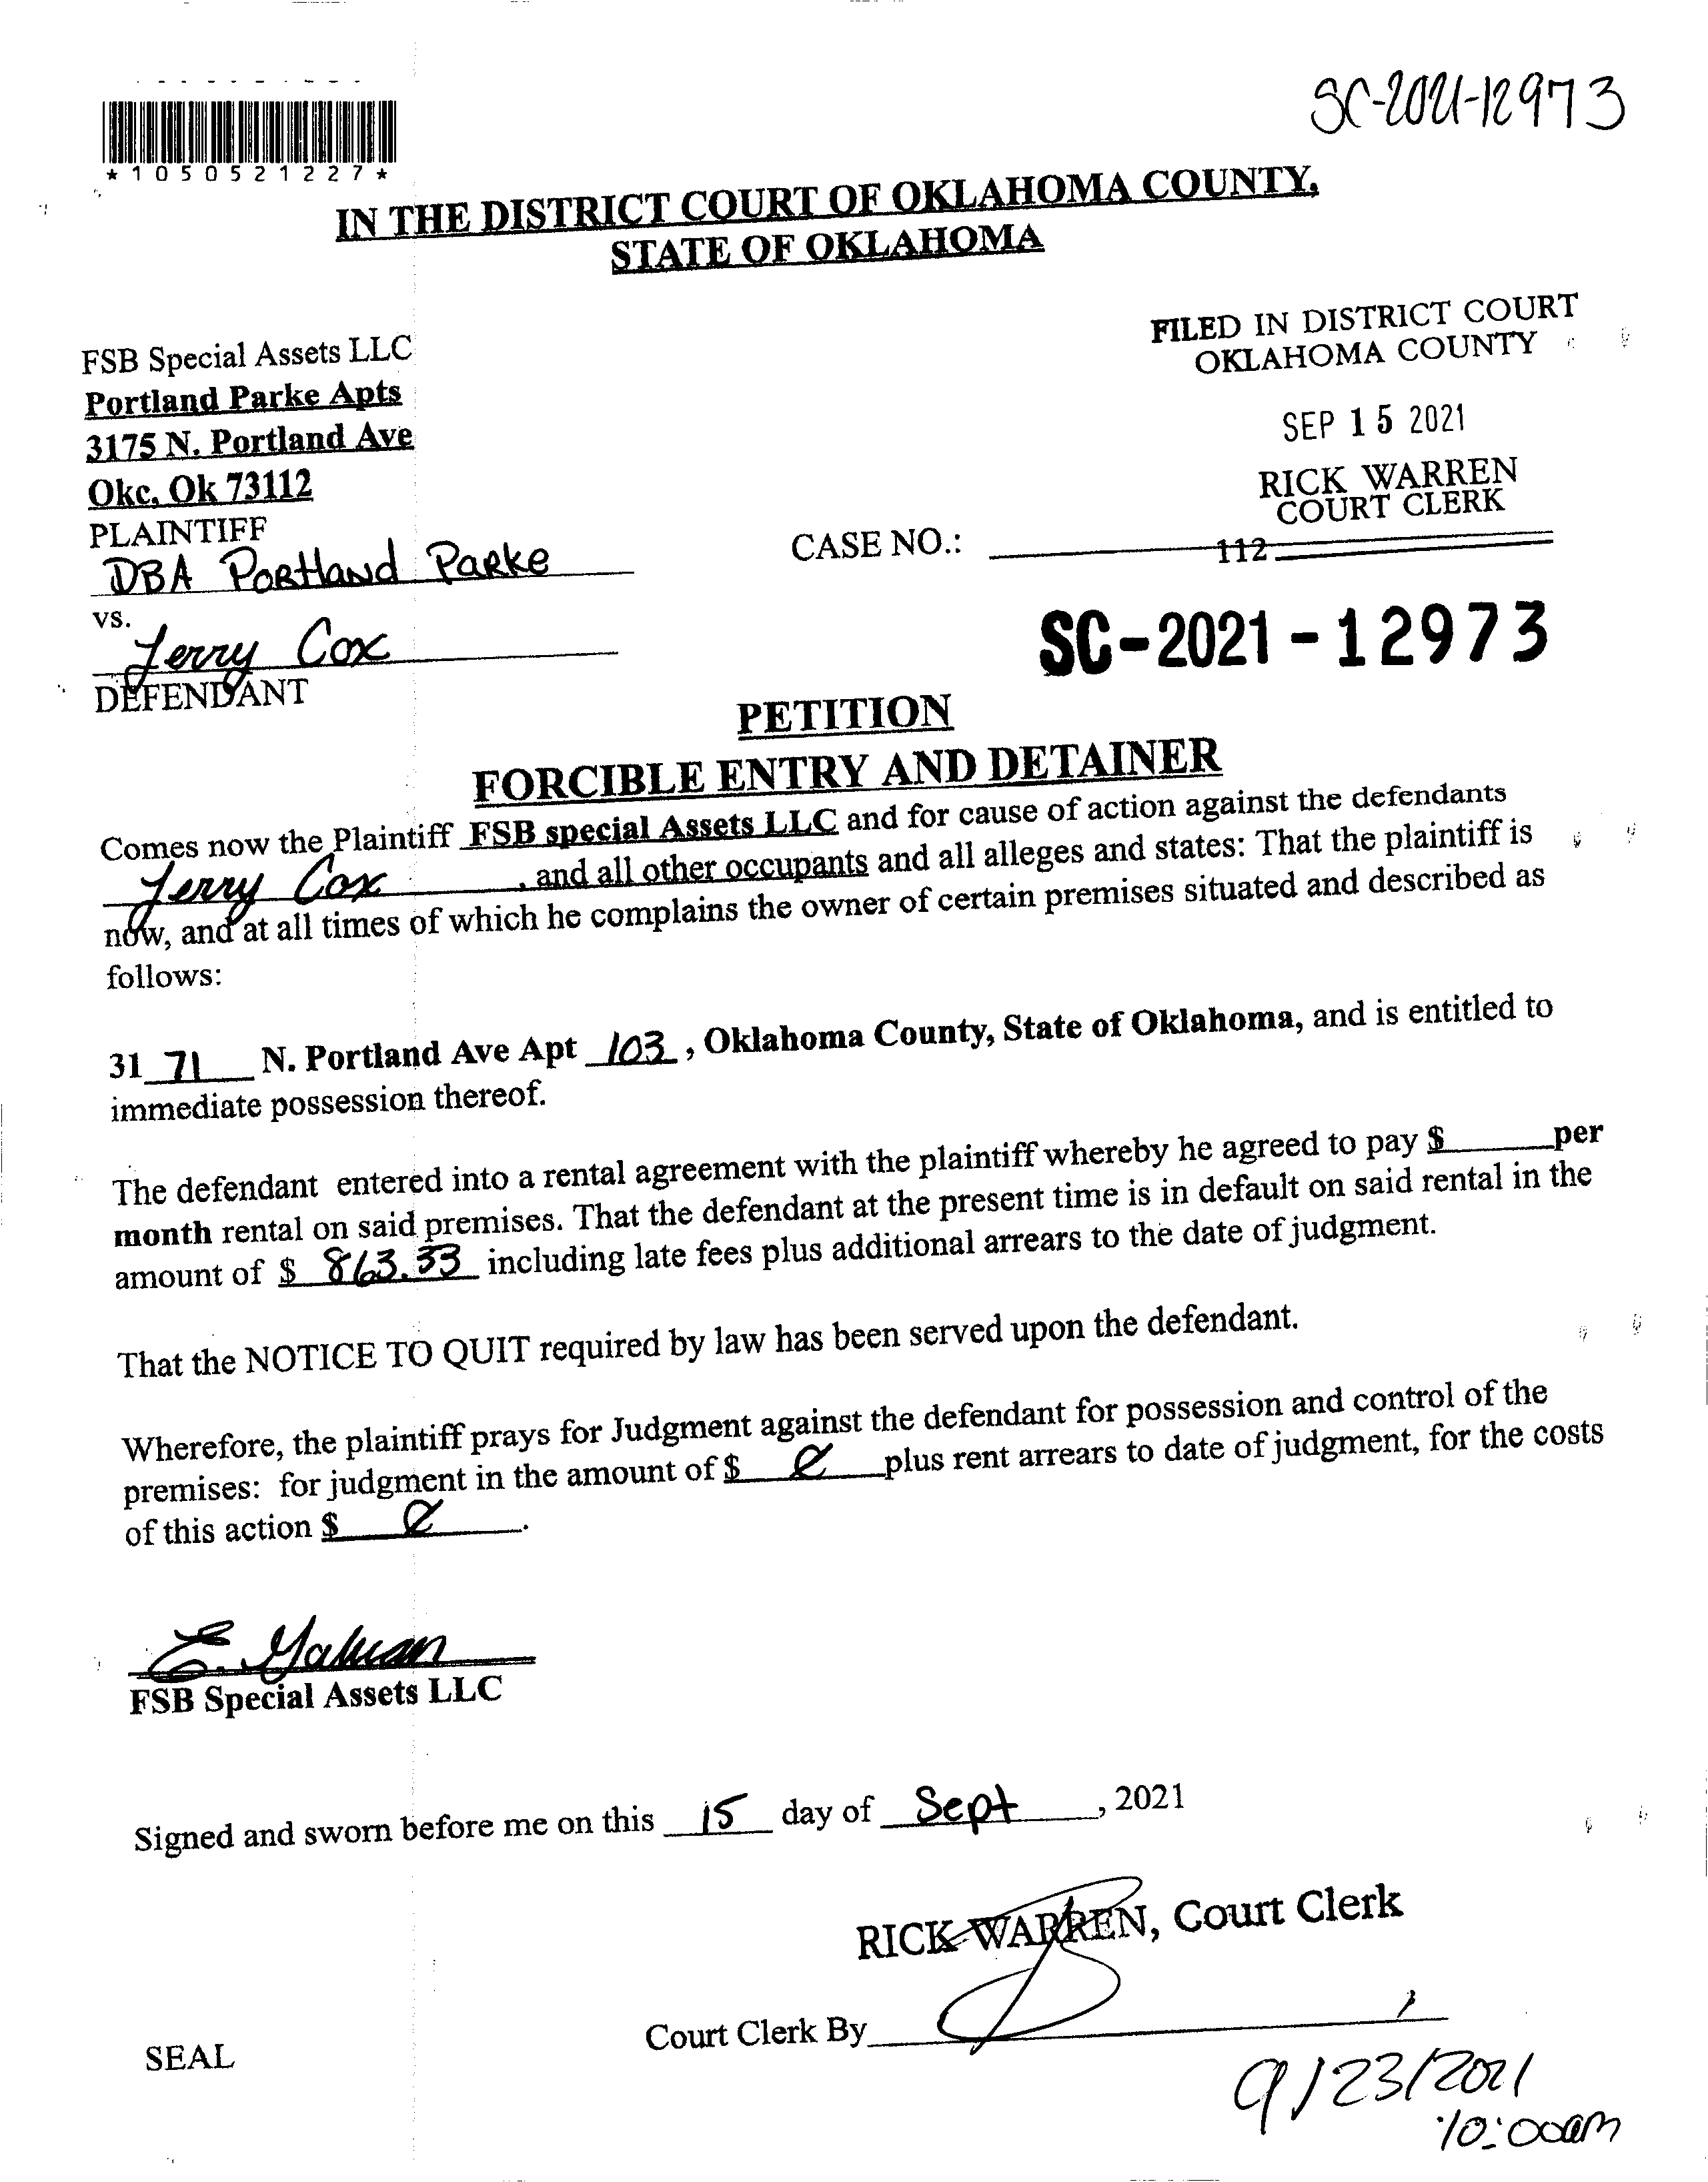 SC-2021-12973
*1050521227*
IN THE DISTRICT COURT OF OKLAHOMA COUNTY,
STATE OF OKLAHOMA
FILED IN DISTRICT COURT
OKLAHOMA COUNTY
SEP 15 2021
RICK WARREN
COURT CLERK
112
FSB Special Assets LLC
Portland Parke Apts
3175 N. Portland Ave
Okc, Ok 73112
PLAINTIFF
DBA Portland Parke
CASE NO.:
SC-2021-12973
vs.
Jerry Cox
DEFENDANT
PETITION
FORCIBLE ENTRY AND DETAINER
Comes now the Plaintiff FSB special Assets LLC and for cause of action against the defendants
Jerry Cox, and all other occupants and all alleges and states: That the plaintiff is
now, and at all times of which he complains the owner of certain premises situated and described as
follows:
31 71 N. Portland Ave Apt 103, Oklahoma County, State of Oklahoma, and is entitled to
immediate possession thereof.
The defendant entered into a rental agreement with the plaintiff whereby he agreed to pay $______per
month rental on said premises. That the defendant at the present time is in default on said rental in the
amount of $ 863.33 including late fees plus additional arrears to the date of judgment.
That the NOTICE TO QUIT required by law has been served upon the defendant.
Wherefore, the plaintiff prays for Judgment against the defendant for possession and control of the
premises: for judgment in the amount of $ plus rent arrears to date of judgment, for the costs
of this action $ .
FSB Special Assets LLC
Signed and sworn before me on this 15 day of Sept, 2021
RICK WARREN, Court Clerk
Court Clerk By
SEAL
9/23/2021
10:00am